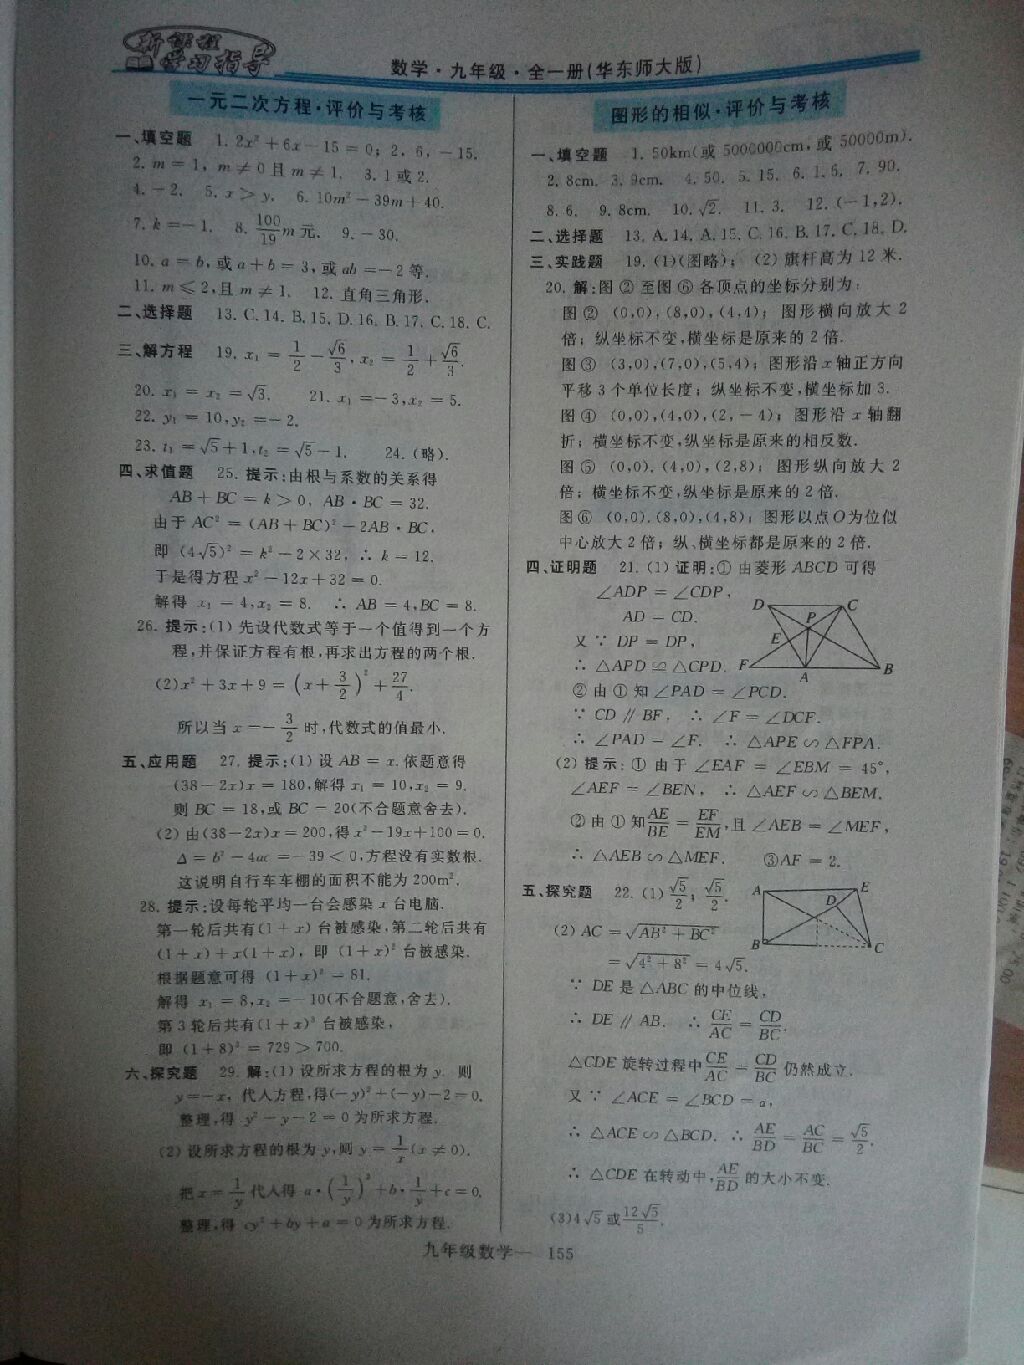 新课程
学习指导
数学·九年级·全一册(华东师大版)
一元二次方程·评价与考核
一、填空题 1. 2x²+6x-15=0; 2, 6, -15.
2. m=1, m≠0且m≠1. 3. 1或2.
4. -2. 5. x>y. 6. 10m²-39m+40.
7. k=-1. 8. 100/19 m元. 9. -30.
10. a=b,或a+b=3,或ab=-2等.
11. m≤2,且m≠1. 12. 直角三角形.
二、选择题 13. C. 14. B. 15. D. 16. B. 17. C. 18. C.
三、解方程 19. x₁=1/2-√6/3, x₂=1/2+√6/3.
20. x₁=x₂=√3. 21. x₁=-3,x₂=5.
22. y₁=10,y₂=-2.
23. t₁=√5+1,t₂=√5-1. 24. (略).
四、求值题 25. 提示:由根与系数的关系得
AB+BC=k>0, AB·BC=32.
由于AC²=(AB+BC)²-2AB·BC,
即(4√5)²=k²-2×32, ∴k=12.
于是得方程x²-12x+32=0.
解得x₁=4,x₂=8. ∴AB=4,BC=8.
26. 提示:(1)先设代数式等于一个值得到一个方
程,并保证方程有根,再求出方程的两个根.
(2)x²+3x+9=(x+3/2)²+27/4.
所以当x=-3/2时,代数式的值最小.
五、应用题 27. 提示:(1)设AB=x.依题意得
(38-2x)x=180,解得x₁=10,x₂=9.
则BC=18,或BC=20(不合题意舍去).
(2)由(38-2x)x=200,得x²-19x+100=0.
Δ=b²-4ac=-39<0,方程没有实数根.
这说明自行车车棚的面积不能为200m².
28. 提示:设每轮平均一台会感染x台电脑.
第一轮后共有(1+x)台被感染,第二轮后共有
(1+x)+x(1+x), 即(1+x)²台被感染.
根据题意可得(1+x)²=81.
解得x₁=8,x₂=-10(不合题意,舍去).
第3轮后共有(1+x)³台被感染,
即(1+8)³=729>700.
六、探究题 29. 解:(1)设所求方程的根为y. 则
y=-x, 代入方程,得(-y)²+(-y)-2=0.
整理,得y²-y-2=0为所求方程.
(2)设所求方程的根为y,则y=1/x(x≠0),
把x=1/y代入得a·(1/y)²+b·1/y+c=0.
整理,得cy²+by+a=0为所求方程.
图形的相似·评价与考核
一、填空题 1. 50km(或5000000cm,或50000m).
2. 8cm. 3. 9cm. 4. 50. 5. 15. 6. 1.5. 7. 90.
8. 6. 9. 8cm. 10. √2. 11. 3. 12. (-1,2).
二、选择题 13. A. 14. A. 15. C. 16. B. 17. C. 18. D.
三、实践题 19. (1)(图略); (2)旗杆高为12米.
20. 解:图②至图⑥各顶点的坐标分别为:
图② (0,0),(8,0),(4,4); 图形横向放大2
倍; 纵坐标不变,横坐标是原来的2倍.
图③ (3,0),(7,0),(5,4); 图形沿x轴正方向
平移3个单位长度; 纵坐标不变,横坐标加3.
图④ (0,0),(4,0),(2,-4); 图形沿x轴翻
折; 横坐标不变,纵坐标是原来的相反数.
图⑤ (0,0),(4,0),(2,8); 图形纵向放大2
倍; 横坐标不变,纵坐标是原来的2倍.
图⑥ (0,0),(8,0),(4,8); 图形以点O为位似
中心放大2倍; 纵、横坐标都是原来的2倍.
四、证明题 21. (1)证明:①由菱形ABCD可得
∠ADP=∠CDP,
AD=CD.
又∵DP=DP,
∴△APD≌△CPD.
②由①知∠PAD=∠PCD.
∵CD∥BF, ∴∠F=∠DCF.
∴∠PAD=∠F. ∴△APE∽△FPA.
D C P E F A B
(2)提示:①由于∠EAF=∠EBM=45°,
∠AEF=∠BEN, ∴△AEF∽△BEM.
②由①知AE/BE=EF/EM,且∠AEB=∠MEF,
∴△AEB∽△MEF. ③AF=2.
五、探究题 22. (1)√5/2, √5/2.
(2)AC=√(AB²+BC²)
=√(4²+8²)=4√5.
A E D B C
∵DE是△ABC的中位线,
∴DE∥AB. ∴CE/AC=CD/BC.
△CDE旋转过程中CE/AC=CD/BC仍然成立.
又∵∠ACE=∠BCD=α,
∴△ACE∽△BCD. ∴AE/BD=AC/BC=√5/2.
∴△CDE在转动中,AE/BD的大小不变.
(3)4√5或12√5/5.
九年级数学— 155